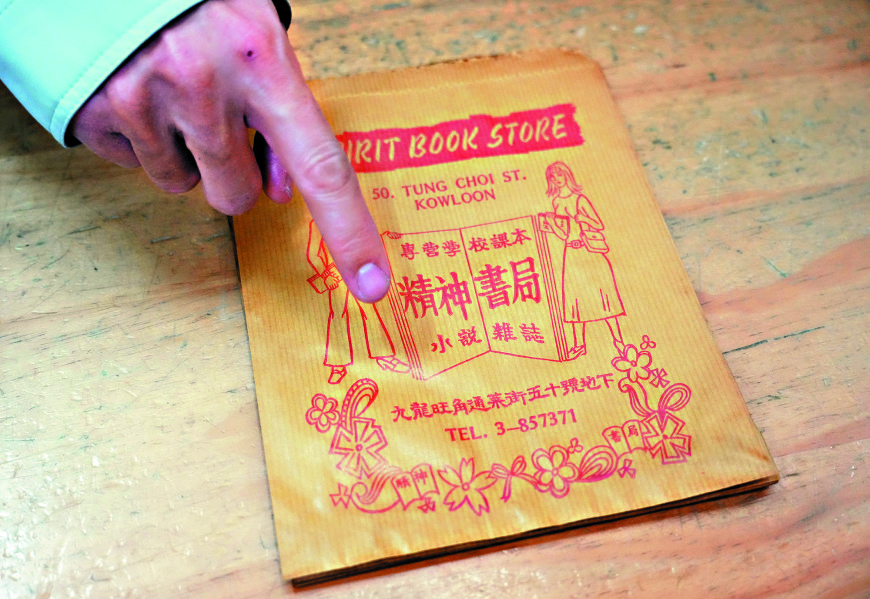 IRIT BOOK STORE
50. TUNG CHOI ST.
KOWLOON
專營學校課本
精神書局
小説雜誌
九龍旺角通菜街五十號地下
TEL. 3-857371
書局
精神